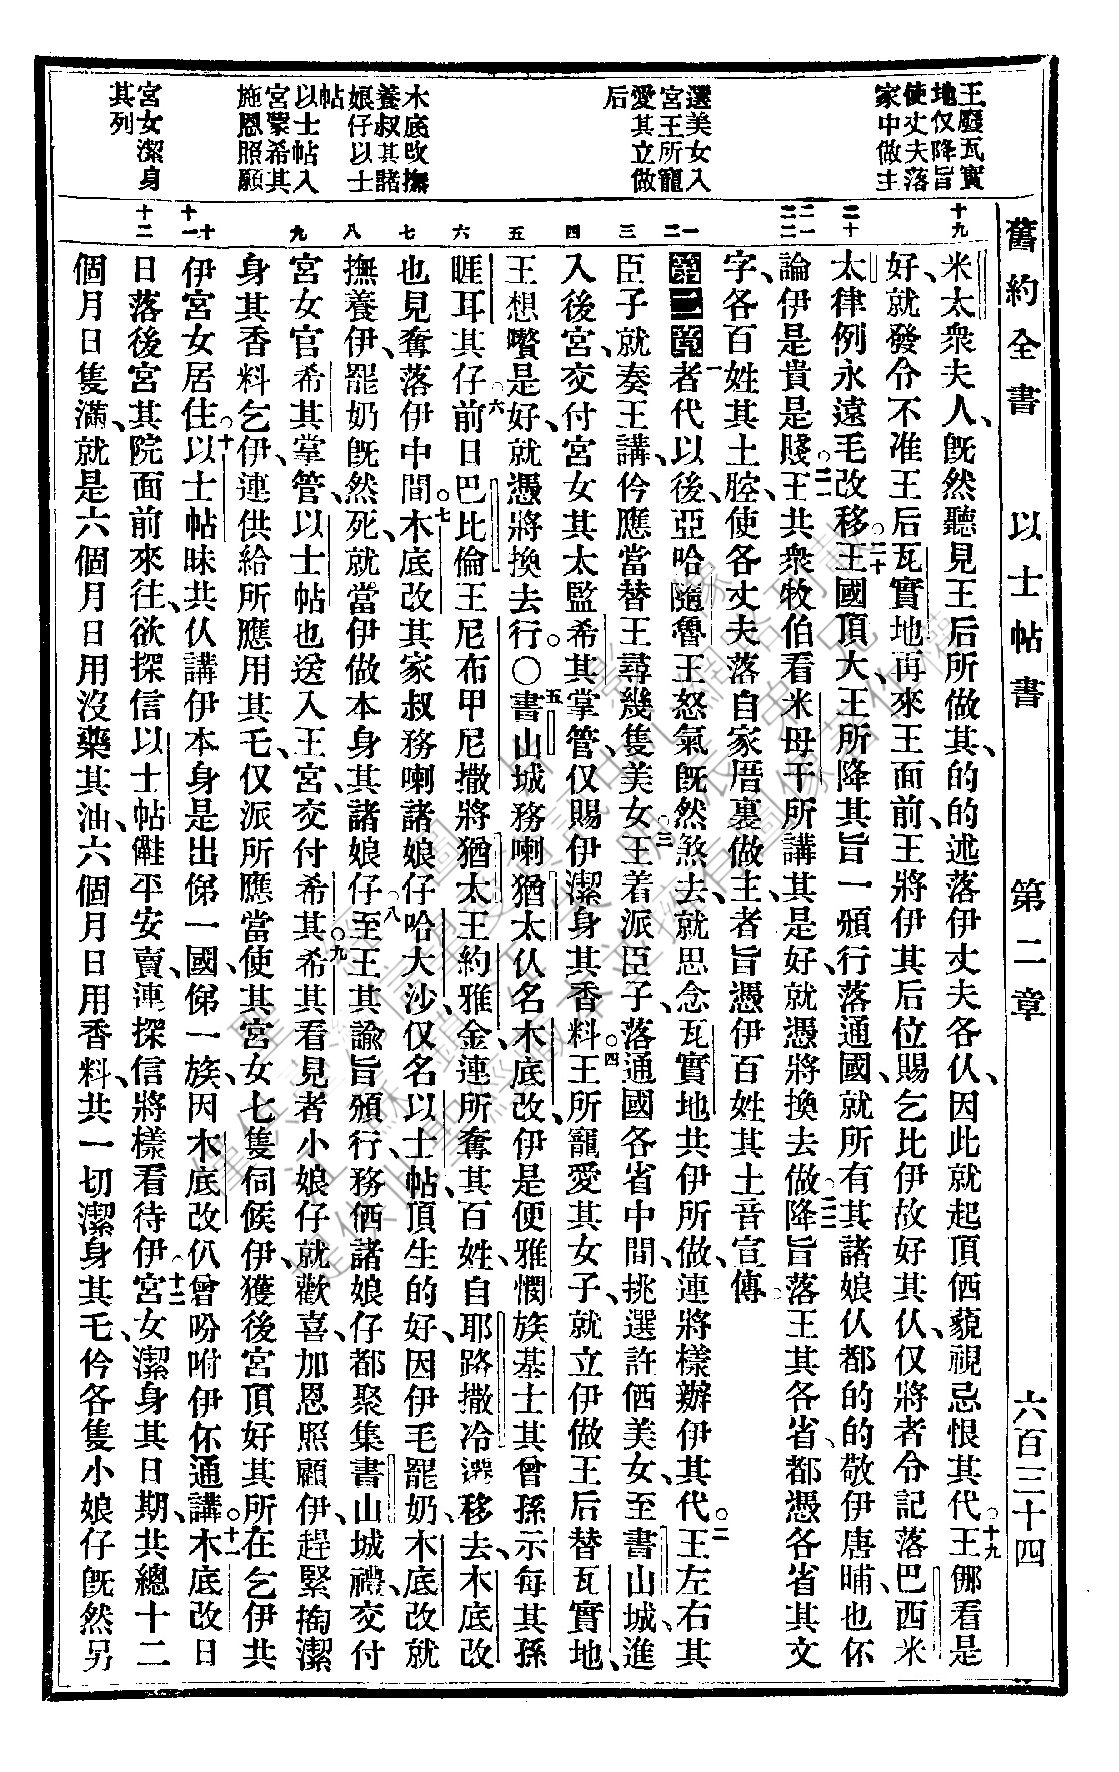 舊約全書　以士帖書　第二章　六百三十四
王廢瓦實
地仅降旨
使丈夫落
家中做主
選美女入
宮王所寵
愛其立做
后
木底改撫
養叔其諸
娘仔以士
帖
以士帖入
宮蒙希其
施恩照顧
宮女潔身
其列
十九
二十
二一
二二
一
二
三
四
五
六
七
八
九
十
十一
十二
米太衆夫人、旣然聽見王后所做其、的的述落伊丈夫各仈、因此就起頂俖藐視忌恨其代。十九王儍看是
好、就發令不准王后瓦實地、再來王面前、王將伊其后位、賜乞比伊故好其仈、仅將者令記落巴西米
太律例、永遠毛改移。二十王國頂大、王所降其旨、一頒行落通國、就所有其諸娘仈都的的敬伊唐晡、也伓
論伊是貴是賤。二一王共衆牧伯看米母干所講其是好、就憑將換去做。二二降旨落王其各省、都憑各省其文
字、各百姓其土腔、使各丈夫落自家厝裏做主、者旨憑伊百姓其土音宣傳。
第二章一者代以後、亞哈隨魯王怒氣旣然煞去、就思念瓦實地、共伊所做、連將樣辦伊其代。二王左右其
臣子、就奏王講、伶應當替王尋幾隻美女。三王着派臣子、落通國各省中間、挑選許俖美女、至書山城、進
入後宮、交付宮女其太監希其掌管、仅賜伊潔身其香料。四王所寵愛其女子、就立伊做王后、替瓦實地、
王想嚽是好、就憑將換去行。○五書山城務喇猶太仈、名木底改、伊是便雅憫族、基士其曾孫、示每其孫、
睚耳其仔。六前日巴比倫王尼布甲尼撒、將猶太王約雅金、連所奪其百姓、自耶路撒冷遷移去、木底改
也見奪落伊中間。七木底改其家叔務喇諸娘仔哈大沙、仅名以士帖、頂生的好、因伊毛罷奶、木底改就
撫養伊、罷奶旣然死、就當伊做本身其諸娘仔。八至王其諭旨頒行、務俖諸娘仔都聚集書山城禮、交付
宮女官希其掌管、以士帖也送入王宮、交付希其。九希其看見者小娘仔、就歡喜、加恩照顧伊、趕緊掏潔
身其香料乞伊、連供給所應用其乇、仅派所應當使其宮女七隻伺候伊、獲後宮頂好其所在、乞伊共
伊宮女居住。十以士帖昧共仈講伊本身是出俤一國、俤一族、因木底改仈曾吩咐伊伓通講。十一木底改日
日落後宮其院面前來往、欲探信以士帖儺平安賣、連探信將樣看待伊。十二宮女潔身其日期、共總十二
個月日隻滿、就是六個月日用沒藥其油、六個月日用香料、共一切潔身其乇、伶各隻小娘仔旣然另